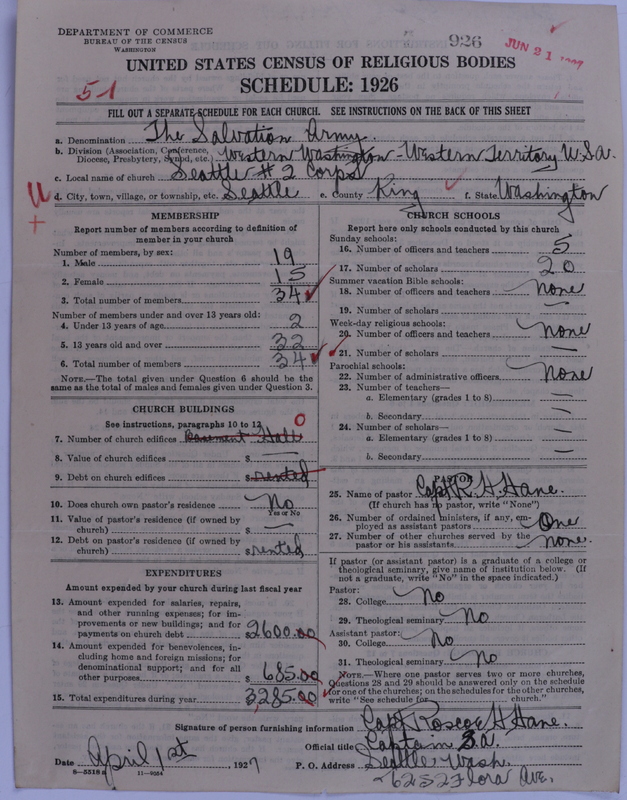 DEPARTMENT OF COMMERCE
BUREAU OF THE CENSUS
WASHINGTON
926
JUN 21
UNITED STATES CENSUS OF RELIGIOUS BODIES
SCHEDULE: 1926
51
FILL OUT A SEPARATE SCHEDULE FOR EACH CHURCH. SEE INSTRUCTIONS ON THE BACK OF THIS SHEET
a. Denomination The Salvation Army.
b. Division (Association, Conference, Diocese, Presbytery, Synod, etc.) Western Washington - Western Territory U.S.A.
c. Local name of church Seattle #2 Corps
U
+
d. City, town, village, or township, etc. Seattle e. County King f. State Washington
MEMBERSHIP
Report number of members according to definition of
member in your church
Number of members, by sex:
1. Male 19
2. Female 15
3. Total number of members 34
Number of members under and over 13 years old:
4. Under 13 years of age 2
5. 13 years old and over 32
6. Total number of members 34
NOTE.—The total given under Question 6 should be the
same as the total of males and females given under Question 3.
CHURCH BUILDINGS
See instructions, paragraphs 10 to 12
7. Number of church edifices Basement Hall 0
8. Value of church edifices $ —
9. Debt on church edifices $ rented
10. Does church own pastor's residence No
Yes or No
11. Value of pastor's residence (if owned by
church) $ —
12. Debt on pastor's residence (if owned by
church) $ rented
EXPENDITURES
Amount expended by your church during last fiscal year
13. Amount expended for salaries, repairs,
and other running expenses; for im-
provements or new buildings; and for
payments on church debt $2600.00
14. Amount expended for benevolences, in-
cluding home and foreign missions; for
denominational support; and for all
other purposes $ 685.00
15. Total expenditures during year 3,285.00
CHURCH SCHOOLS
Report here only schools conducted by this church
Sunday schools:
16. Number of officers and teachers 5
17. Number of scholars 20
Summer vacation Bible schools:
18. Number of officers and teachers None
19. Number of scholars —
Week-day religious schools:
20. Number of officers and teachers None
21. Number of scholars —
Parochial schools:
22. Number of administrative officers None
23. Number of teachers—
a. Elementary (grades 1 to 8) —
b. Secondary —
24. Number of scholars—
a. Elementary (grades 1 to 8) —
b. Secondary —
PASTOR
25. Name of pastor Capt R. H. Hane.
(If church has no pastor, write "None")
26. Number of ordained ministers, if any, em-
ployed as assistant pastors One
27. Number of other churches served by the
pastor or his assistants none.
If pastor (or assistant pastor) is a graduate of a college or
theological seminary, give name of institution below. (If
not a graduate, write "No" in the space indicated.)
Pastor:
28. College No
29. Theological seminary No
Assistant pastor:
30. College No
31. Theological seminary No
NOTE.—Where one pastor serves two or more churches,
Questions 28 and 29 should be answered only on the schedule
for one of the churches; on the schedules for the other churches,
write "See schedule for church."
Signature of person furnishing information Capt. Roscoe H. Hane.
Official title Captain S.A.
Date April 1st, 1927 P. O. Address Seattle Wash.
6252 Flora Ave.
8—5318a 11—9054